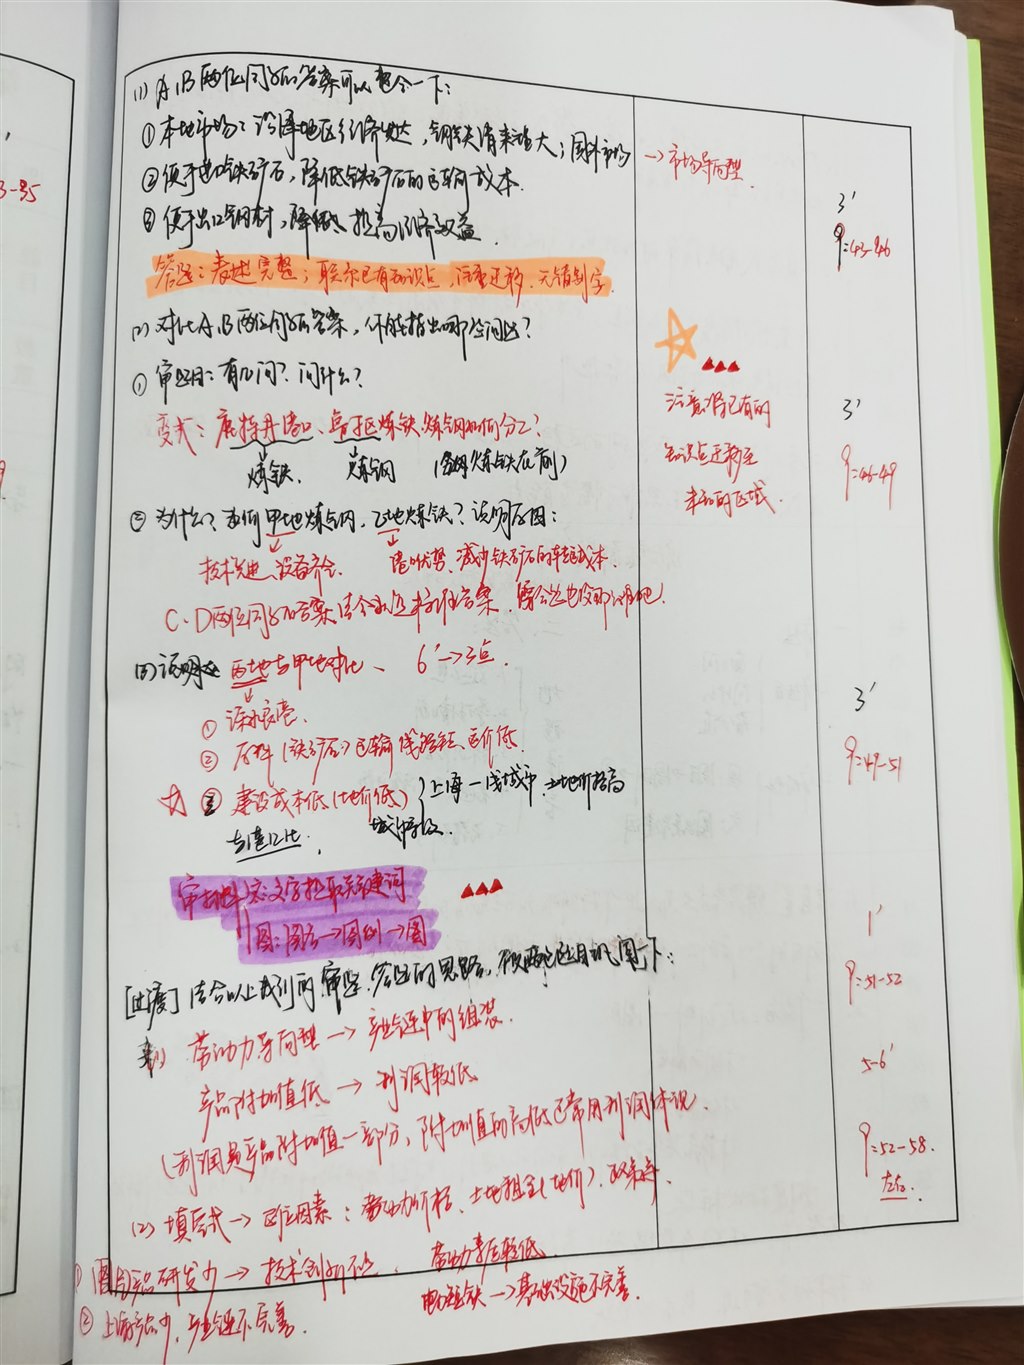 (1) A、B两位同学的答案可以整合一下：
①本地市场：沿海地区经济发达，钢铁需求增大；国外市场
→市场导向型
②便于进口铁矿石，降低铁矿石的运输成本.
3'
③便于出口钢材，降低 提高经济效益.
9:43-46
答题：表述完整；联系已有知识点，注重迁移.无错别字.
(2) 对比A、B两位同学的答案，你能指出哪些问题？
①审题目：有几问？问什么？
注意将已有的
3'
变式：鹿特丹港口、鲁尔区炼铁、炼钢如何分工？
知识点迁移至
9:46-49
炼铁. 炼钢 (炼铁在前)
未知的区域.
②为什么？为何甲地炼钢，乙地炼铁？说明原因：
技术先进、设备齐全. 港口优势、减少铁矿石的转运成本.
C、D两位同学的答案
(3) 说明 丙地与甲地对比、 6'→3点.
3'
①深水良港.
②原料(铁矿石)运输线路短、运价低.
9:49-51
☆ ③建设成本低(地价低) 上海一线城市、土地价格高
与港口比.
审材料 文字提取关键词
图：图名→图例→图
1'
[过渡] 结合以上我们的审题、答题的思路，
9:51-52
(1) 劳动力导向型→产业链中的组装.
产品附加值低→利润较低
5-6'
(利润是产品附加值一部分，附加值的高低已常用利润体现.
9:52-58.
左右.
(2) 填空式→区位因素：劳动力价格、土地租金(地价)、政策
①产品研发少→技术创新不足、劳动素质较低
②上海产品少、产业链不完善. →基础设施不完善.